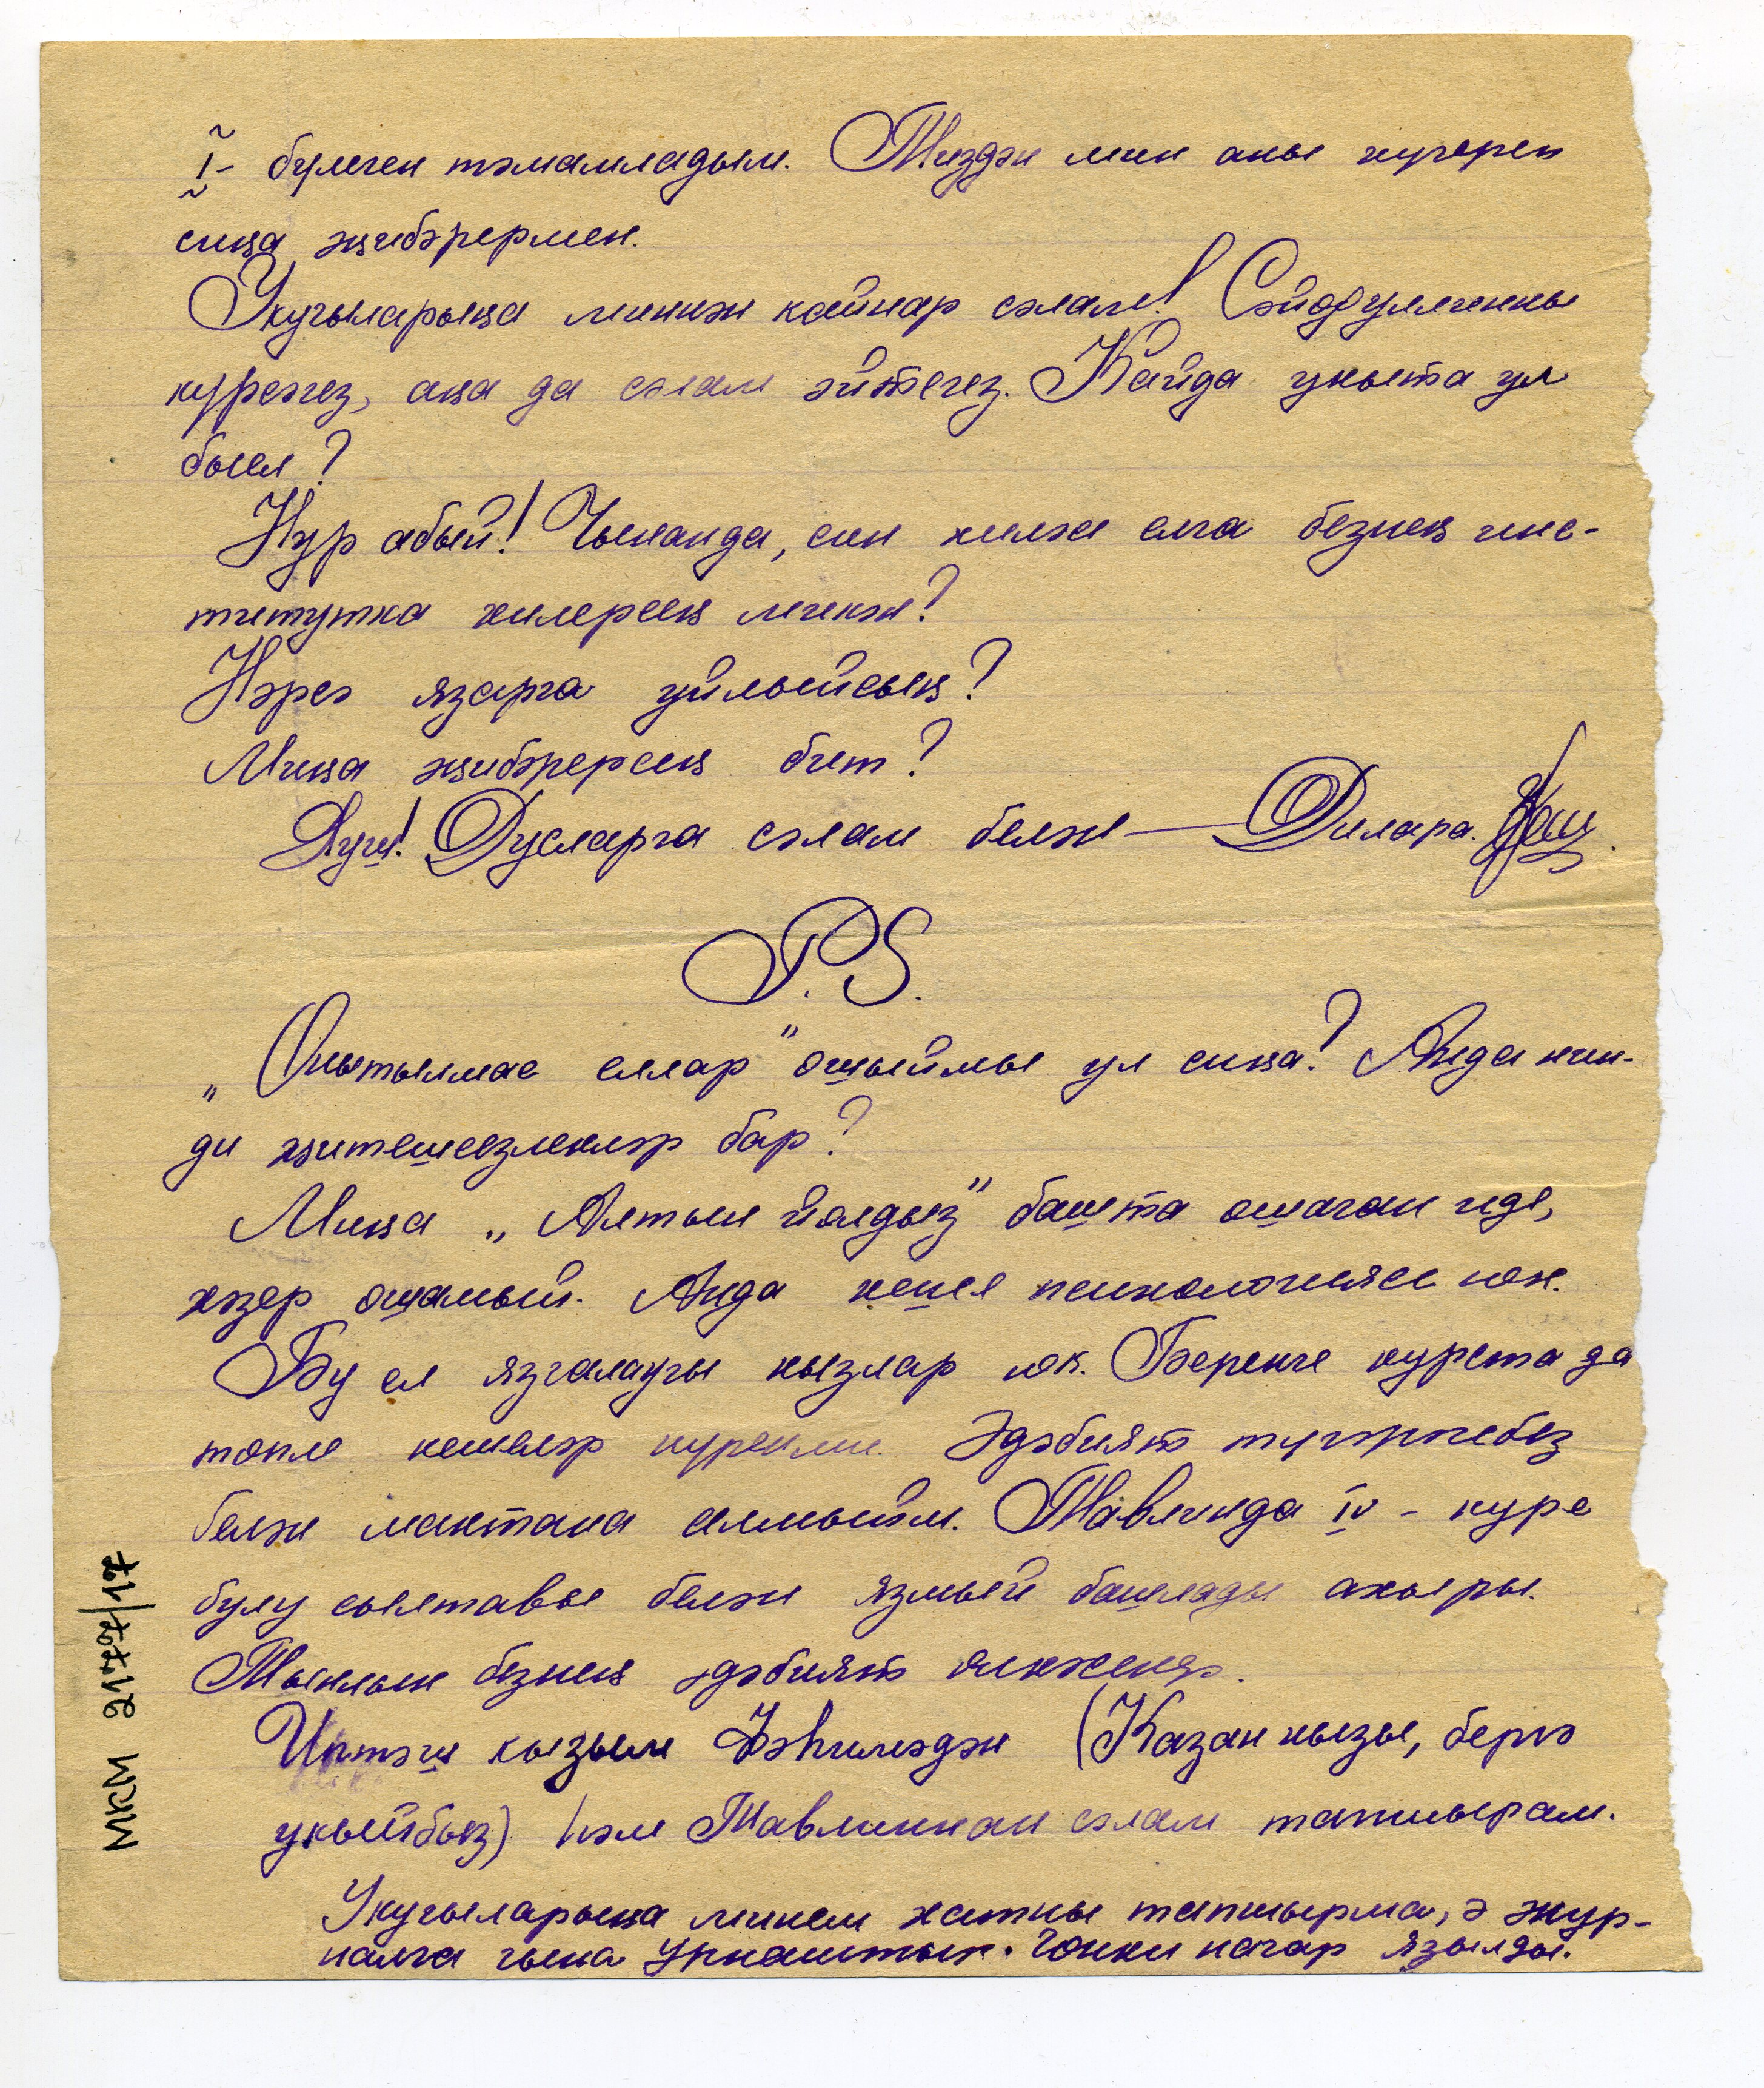 I - бүлеген тәмамладым. Тиздән мин аны күчереп
сиңа җибәрермен.
Укучыларыңа миннән кайнар сәлам! Сәйфуллинны
күрсәгез, аңа да сәлам әйтегез. Кайда укыта ул
быел?
Нур абый! Чынлап да, син килән елга безнең инс-
титутка килерсең микән?
Нәрсә язарга уйлыйсың?
Миңа җибәрерсең бит?
Хуш! Дусларга сәлам белән — Дилара.
P.S.
„Онытылмас еллар" ошыймы ул сиңа? Анда нин-
ди җитешсезлекләр бар?
Миңа „Алтын йолдыз" башта ошаган иде,
хәзер ошамый. Анда кеше психологиясе юк.
Бу ел язгалаучы кызлар юк. Беренче курста да
төпле кешеләр күренми. Әдәбият түгәрәгебез
белән мактана алмыйм. Тавлинда IV - курс
булу сылтавы белән язмый башлады ахыры.
Тыныч безнең әдәбият өлкәсендә.
Иптәш кызым Нәһимәдән (Казан кызы, бергә
укыйбыз) һәм Тавлиннан сәлам тапшырам.
Укучыларыңа минем хатны тапшырма, ә жур-
налга гына урнаштыр. Чөнки начар язылды.
МКМ 2177/17